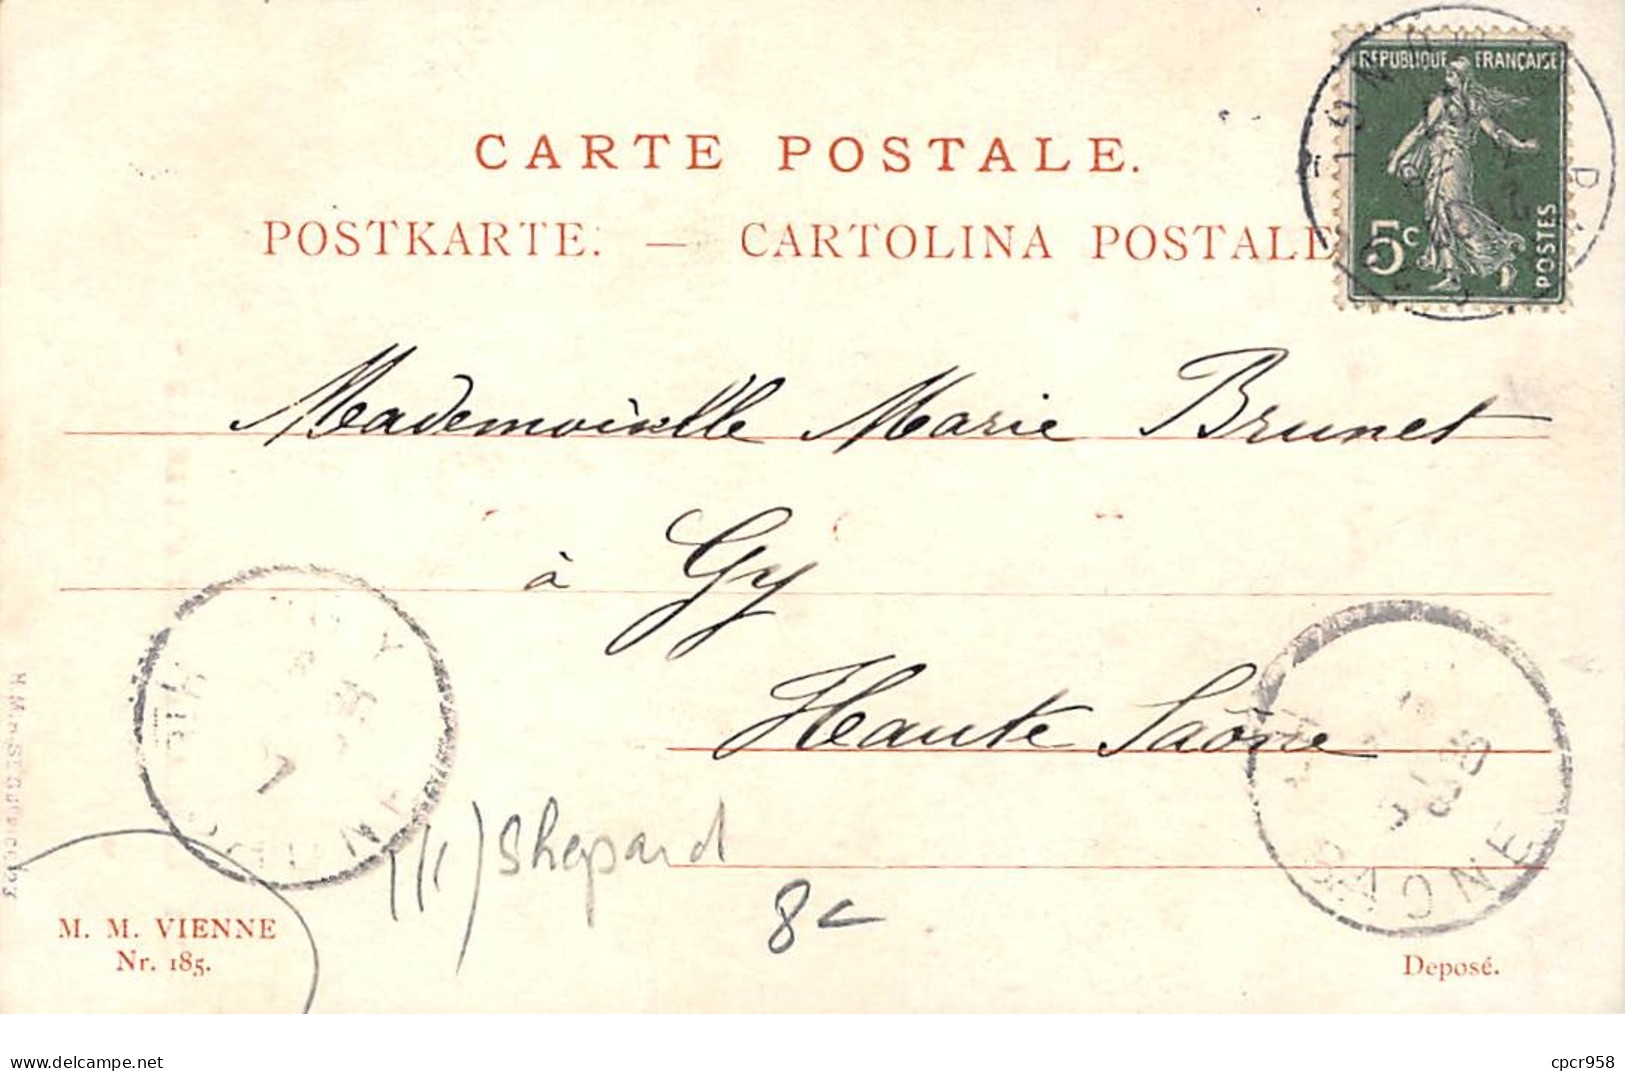 REPUBLIQUE FRANÇAISE
5c
POSTES
CARTE POSTALE.
POSTKARTE. — CARTOLINA POSTALE
Mademoiselle Marie Brunet
à Gy
Haute Saône
GY
(11) Shepard
8c
M. M. VIENNE
Nr. 185.
Deposé.
delcampe.net
cpcr958